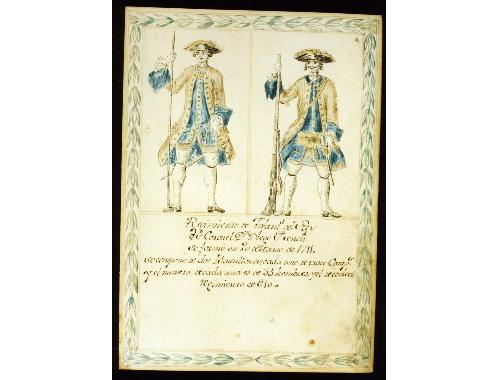 Regimiento de
Su Coronel Dn
Se formò en 20 de Marzo de 1711.
Se compone de dos Batallones, cada uno de trece Comp.s
y el numero de cada una es de 33 hombres, y el de todo el
Regimiento de 810.